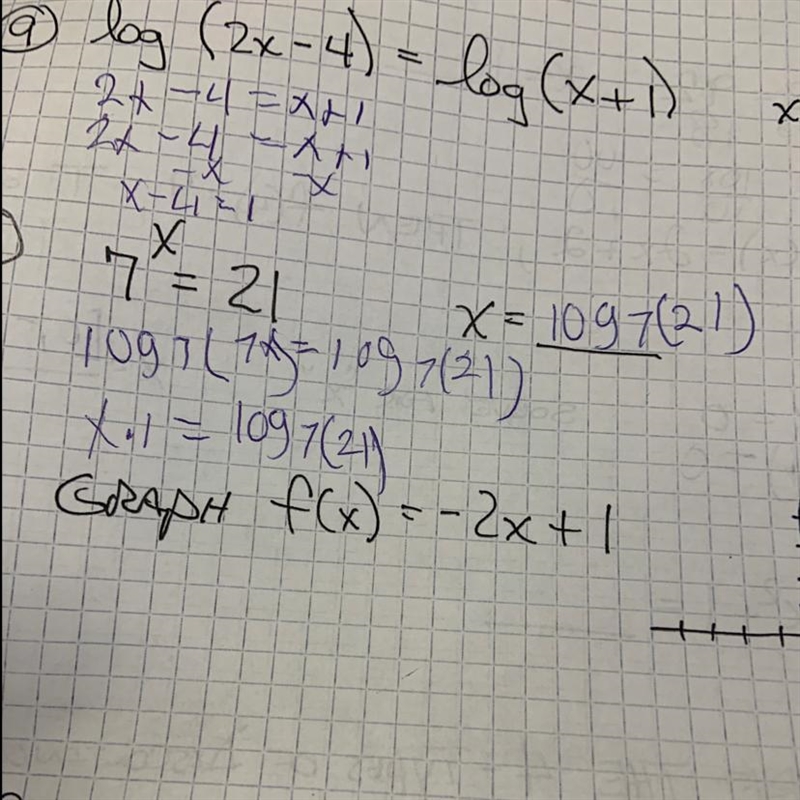 9 log (2x-4) = log(x+1) x
2x-4=x+1
2x-4=x+1
-x -x
x-4=1
7^x = 21
x = log₇(21)
log₇(7x)=log₇(21)
x.1 = log₇(21)
GRAPH f(x) = -2x + 1